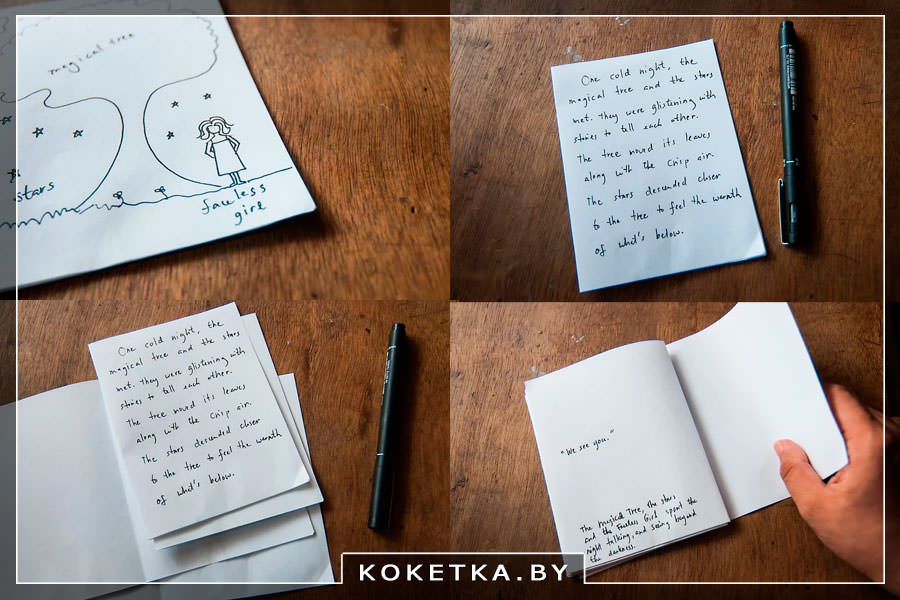 magical tree
stars
faceless
girl
One cold night, the
magical tree and the stars
met. They were glistening with
stories to tell each other.
The tree moved its leaves
along with the crisp air.
The stars descended closer
to the tree to feel the warmth
of what's below.
One cold night, the
magical tree and the stars
met. They were glistening with
stories to tell each other.
The tree moved its leaves
along with the crisp air.
The stars descended closer
to the tree to feel the warmth
of what's below.
"We see you."
The Magical Tree, the stars
and the Faceless Girl spent the
night talking, and seeing beyond
the darkness.
KOKETKA.BY